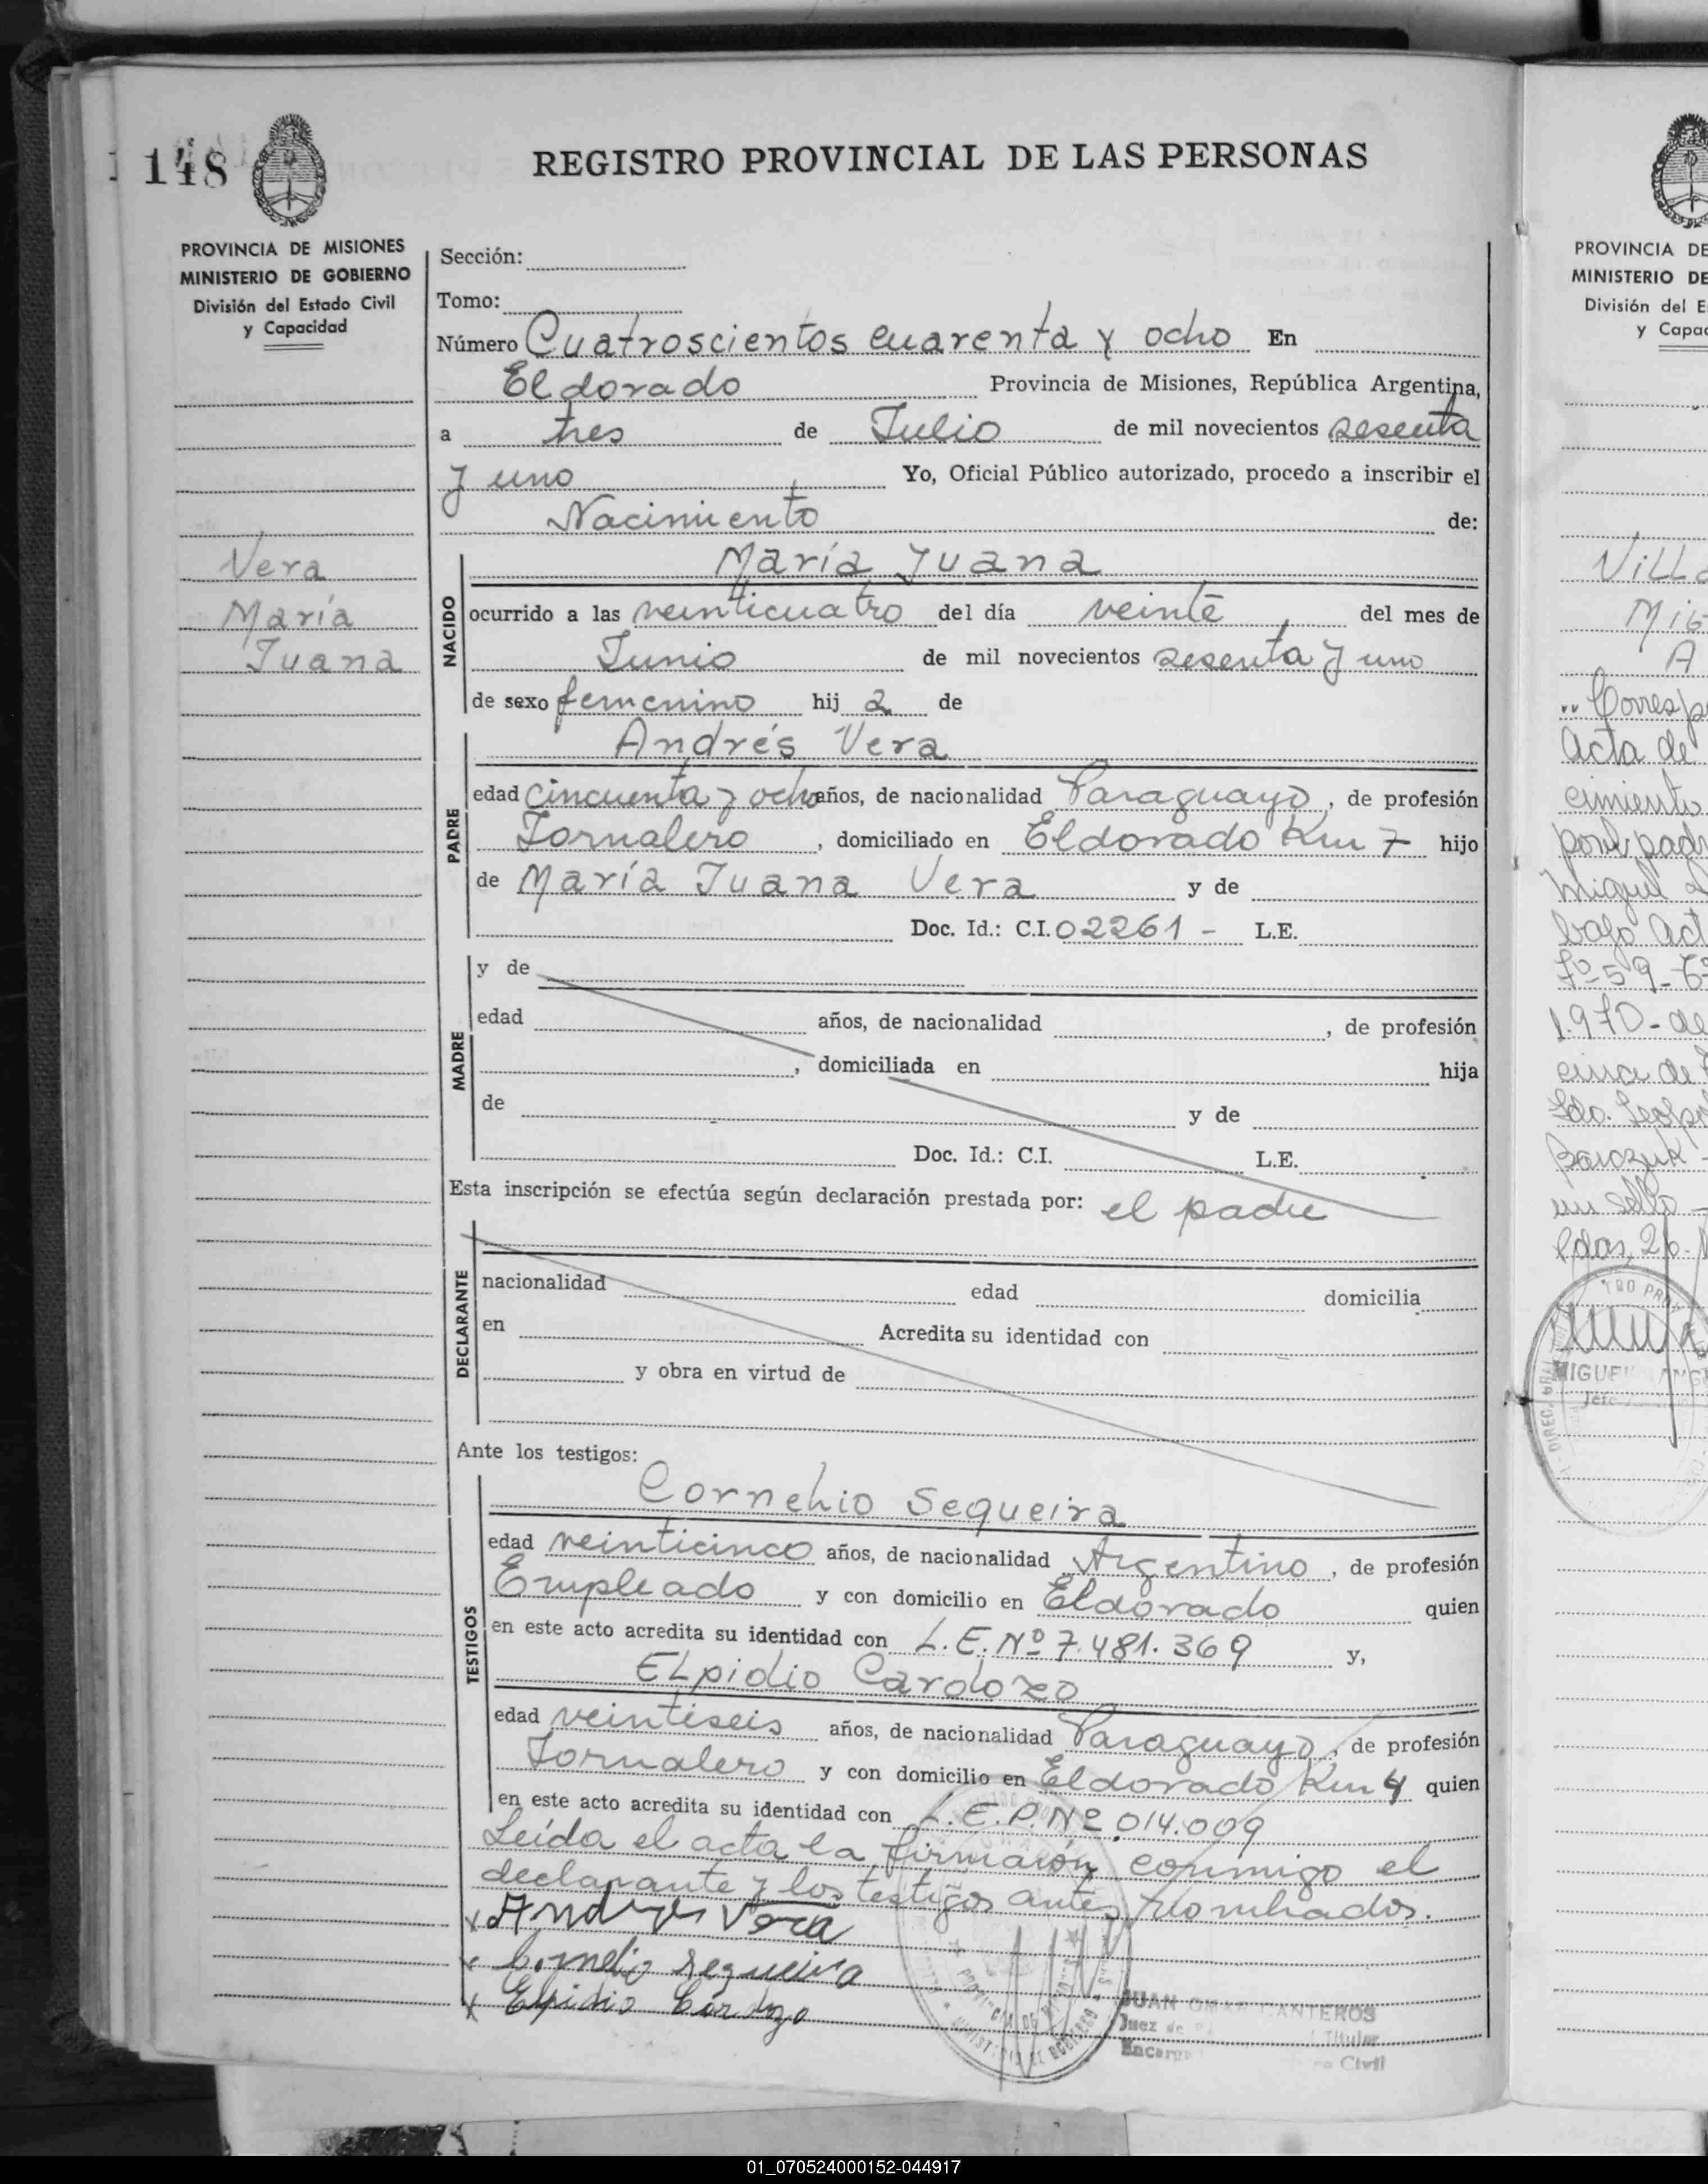 148
REGISTRO PROVINCIAL DE LAS PERSONAS
PROVINCIA DE MISIONES
MINISTERIO DE GOBIERNO
División del Estado Civil
y Capacidad
Vera
María
Juana
Sección:
Tomo:
Número Cuatroscientos cuarenta y ocho En
Eldorado Provincia de Misiones, República Argentina,
a tres de Julio de mil novecientos sesenta
y uno Yo, Oficial Público autorizado, procedo a inscribir el
Nacimiento de:
NACIDO
María Juana
ocurrido a las veinticuatro del día veinte del mes de
Junio de mil novecientos sesenta y uno
de sexo femenino hij a de
PADRE
Andrés Vera
edad cincuenta y ocho años, de nacionalidad Paraguayo, de profesión
Jornalero, domiciliado en Eldorado Km 7 hijo
de María Juana Vera y de
Doc. Id.: C.I. 02261 - L.E.
MADRE
y de
edad años, de nacionalidad , de profesión
, domiciliada en hija
de y de
Doc. Id.: C.I. L.E.
Esta inscripción se efectúa según declaración prestada por: el padre
DECLARANTE
nacionalidad edad domicilia
en Acredita su identidad con
y obra en virtud de
Ante los testigos:
TESTIGOS
Cornelio Sequeira
edad veinticinco años, de nacionalidad Argentino, de profesión
Empleado y con domicilio en Eldorado quien
en este acto acredita su identidad con L.E. Nº 7.481.369 y,
ELpidio Cardozo
edad veintiseis años, de nacionalidad Paraguayo, de profesión
Jornalero y con domicilio en Eldorado Km 4 quien
en este acto acredita su identidad con L.E.P. Nº 014.009
Leída el acta la firmaron conmigo el
declarante y los testigos antes nombrados.
x Andres Vera
x Cornelio Sequeira
x Elpidio Cardozo
JUAN OMAR CANTEROS
Juez de Titular
Civil
PROVINCIA DE
MINISTERIO DE
División del E
y Capac
Vill
Mig
A
Corresp
Acta de
cimiento
por padr
Miguel
bajo Act
Fº 59-
1.970 - de
un sello
MIGUEL ANG
Jefe
01_070524000152-044917